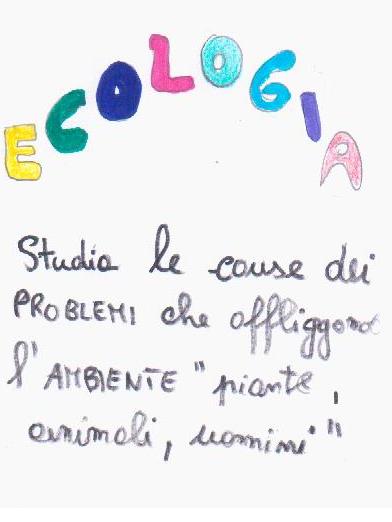 ECOLOGIA
Studia le cause dei
PROBLEMI che affliggono
l'AMBIENTE "piante,
animali, uomini"